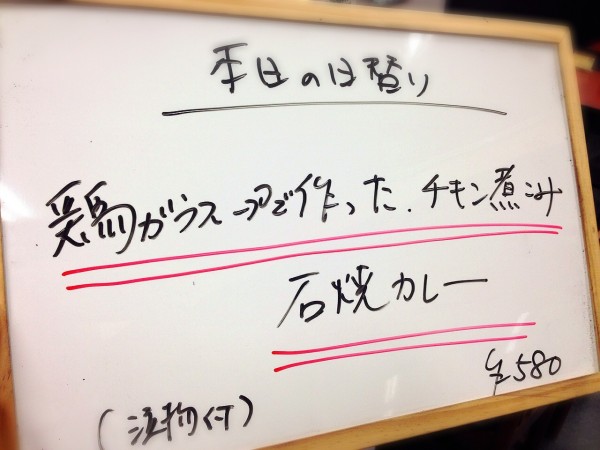 平日の日替り
鶏ガラスープで作った、チキン煮込み
石焼カレー
¥580
(漬物付)